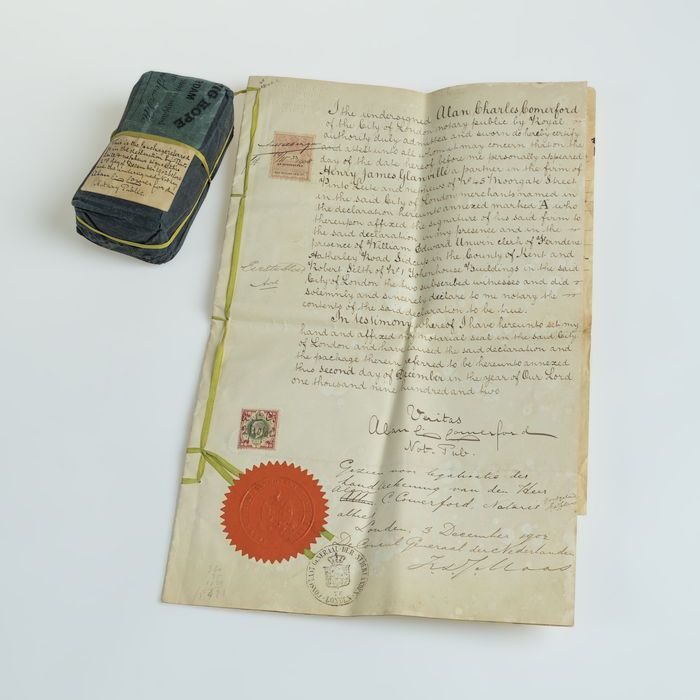 NG HOPE
DAM
This is the package referred
to in the declaration
day of December 1902 before
me the undersigned Notary
Alan C. Comerford
Notary Public
I the undersigned Alan Charles Comerford
of the City of London notary public by Royal
authority duly admitted and sworn do hereby certify
and attest unto all whom it may concern that on the
day of the date hereof before me personally appeared
Henry James Glanville a partner in the firm of
Pinto Leite and Nephews of No. 57 Moorgate Street
in the said City of London merchants named in
the declaration hereunto annexed marked A who
thereupon affixed the signature of his said firm to
the said declaration in my presence and in the
presence of William Edward Unwin clerk of
Hatherley Road Sidcup in the County of Kent and
Robert Felth of No. 1 Tokenhouse Buildings in the said
City of London the two subscribed witnesses and did
solemnly and sincerely declare to me notary the
contents of the said declaration to be true.
In testimony whereof I have hereunto set my
hand and affixed my notarial seal in the said City
of London and have caused the said declaration and
the package therein referred to be hereunto annexed
this second day of December in the year of Our Lord
one thousand nine hundred and two
Veritas
Alan C. Comerford
Not. Pub.
Gezien voor legalisatie der
handteekening van den Heer
C. Comerford, Notaris
alhier
Londen, 3 December 1902
De Consul Generaal der Nederlanden
Maas
CONSULAAT GENERAAL DER NEDERLANDEN
TE LONDEN